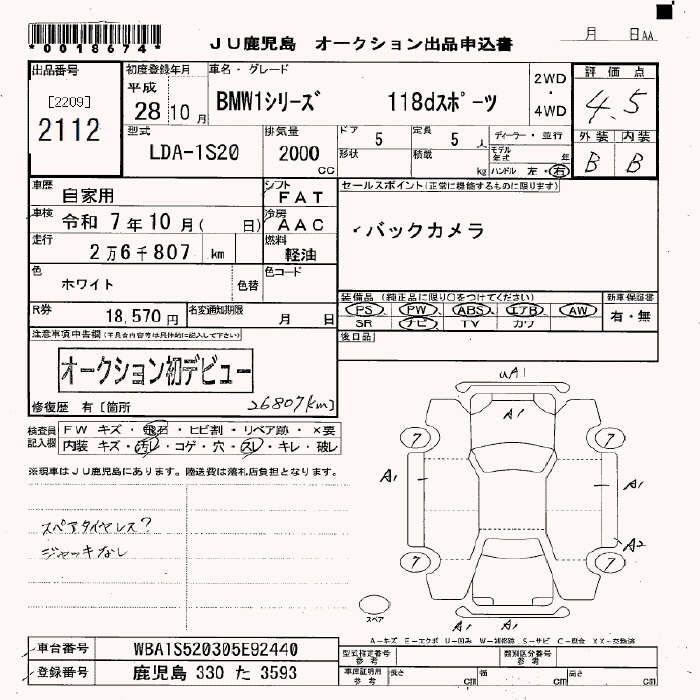 *0018674*
JU鹿児島 オークション出品申込書
月 日AA
出品番号
[2209]
2112
初度登録年月
平成
28 10 月
車名・グレード
BMW1シリーズ 118dスポーツ
2WD
・
4WD
評価点
4.5
外装 内装
B B
型式
LDA-1S20
排気量
2000
cc
ドア 5
定員 5 人
形状
積載 kg
ディーラー・並行
モデル年式 年
ハンドル 左・右
車歴
自家用
シフト
FAT
車検
令和 7年10月( 日)
冷房
AAC
走行
2万6千807 km
燃料
軽油
色
ホワイト
色替
色コード
R券
18,570円
名変通知期限
月 日
セールスポイント(正常に機能するものに限ります)
バックカメラ
装備品(純正品に限り○をつけてください)
PS、PW、ABS、エアB、AW
SR ナビ TV カワ
新車保証書
有・無
後日品
注意事項申告欄(不具合内容等は具体的に記入して下さい)
オークション初デビュー
修復歴 有[箇所
26807km]
検査員記入欄
FW キズ・飛石・ヒビ割・リペア跡・×要
内装 キズ・汚レ・コゲ・穴・スレ・キレ・破レ
※現車はJU鹿児島にあります。陸送費は落札店負担となります。
スペアタイヤレス?
ジャッキなし
uA1
A1
7
7
A1
A1
A1
A2
7
7
A1
A1
スペア
A-キズ E-エクボ U-凹み W-補修跡 S-サビ C-腐食 XX-交換済
車台番号
WBA1S520305E92440
登録番号
鹿児島 330 た 3593
型式指定番号
参考
類別区分番号
参考
車庫証明用
参考
長さ cm
幅 cm
高さ cm